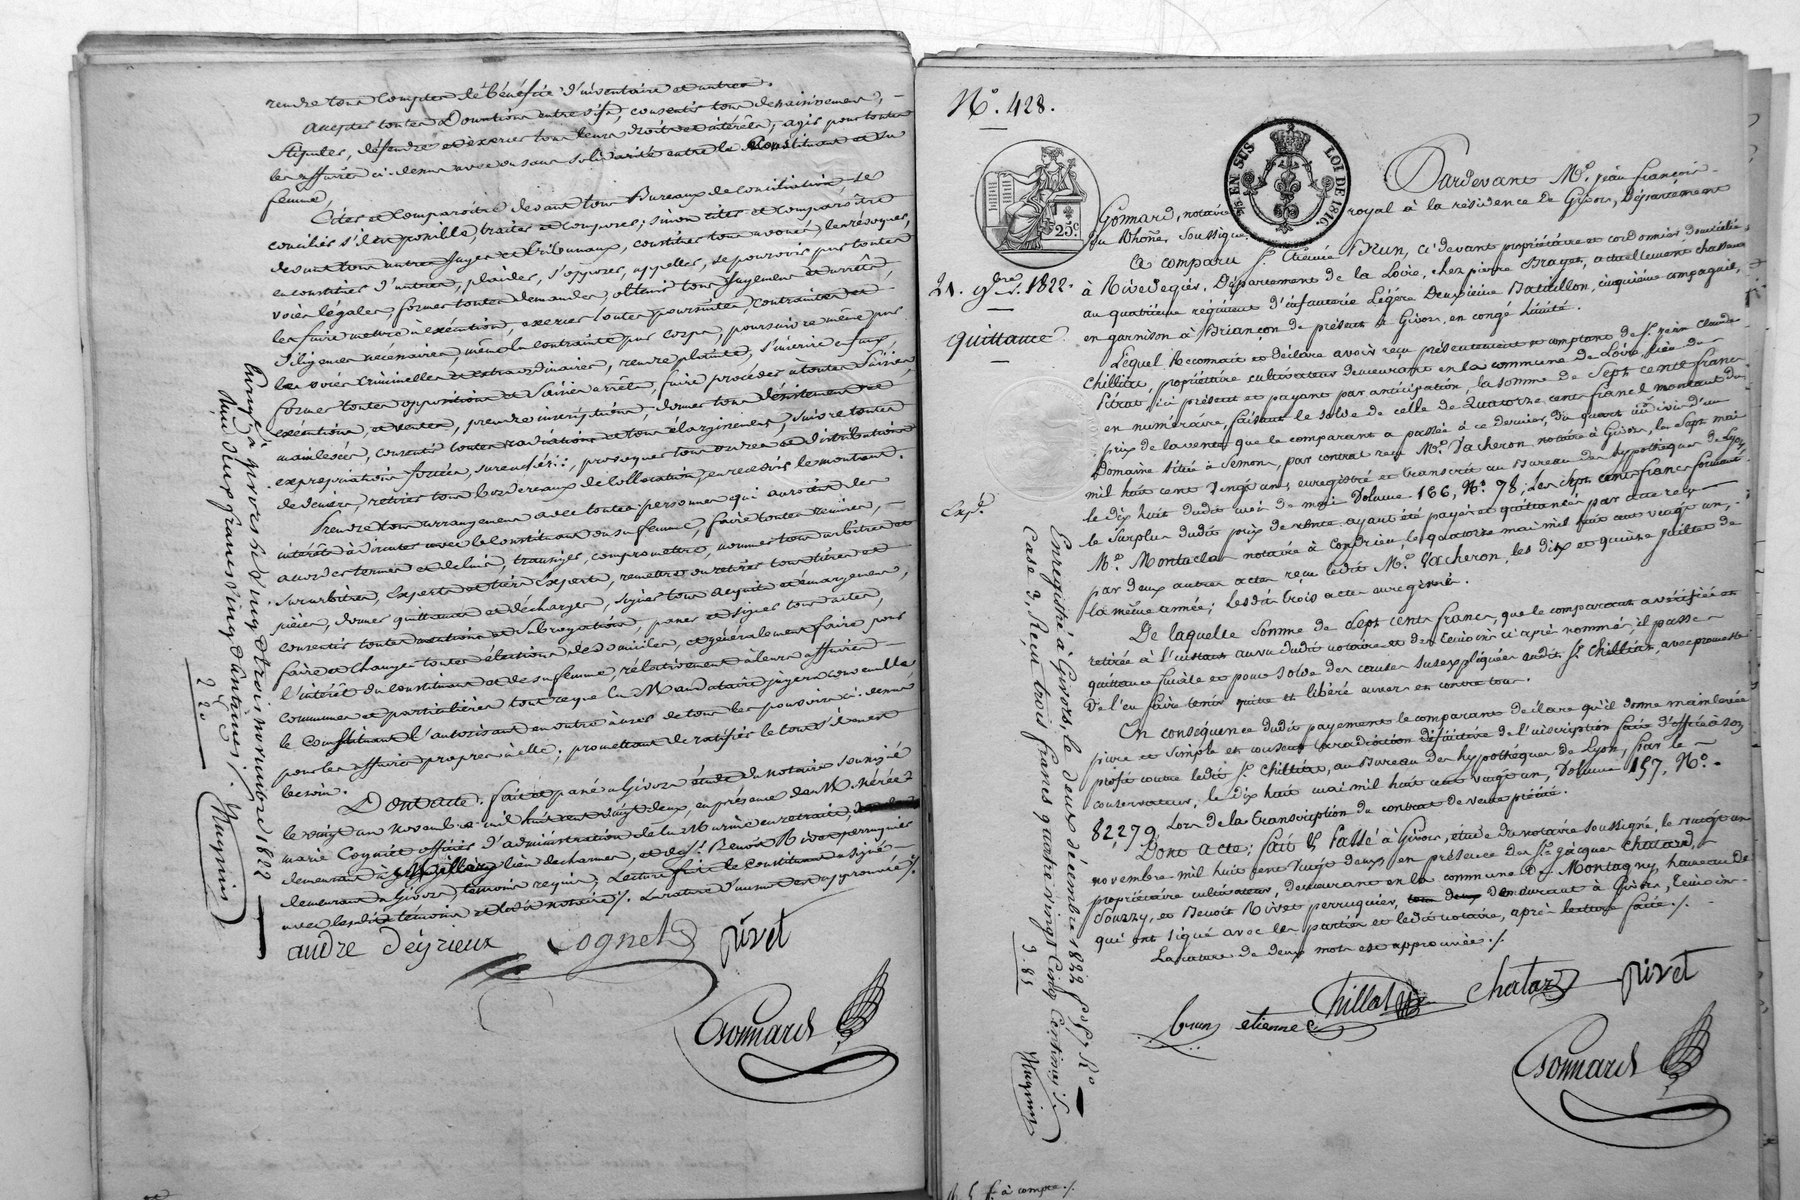 rendre tous comptes de bénéfice d'inventaire et autres.
accepter toutes donations entre vifs, consentir tous dessaisissemens,
stipuler, défendre et exercer tous leurs droits et intérêts, agir pour toutes
les affaires ci-dessus avec ou sans solidarité entre le constituant et sa
femme,
Citer et comparoître devant tous Bureaux de conciliation se
concilier s'il est possible, traiter et composer; sinon citer et comparoître
devant tous autres juges et tribunaux, constituer tous avoués, les révoquer,
en constituer d'autres, plaider, s'opposer, appeller, se pourvoir par toutes
voies légales, former toutes demandes, obtenir tous jugemens et arrêts,
les faire mettre à exécution, exercer toutes poursuites, contraintes et
diligences nécessaires, même la contrainte par corps, poursuivre même par
les voies criminelles et extraordinaires, rendre plainte, s'inscrire en faux,
former toutes oppositions et saisies arrêts, faire procéder à toutes saisies
exécutions, et ventes, prendre inscriptions, donner tous désistemens et
mainlevées, consentir toutes radiations et tous élargissemens, suivre toutes
expropriations forcées, surenchérir, provoquer tous ordres et distributions
de deniers, retirer tous bordereaux de collocation, en recevoir le montant.
Prendre tous arrangemens avec toutes personnes qui auroient des
intérêts à discuter avec le constituant ou sa femme, faire toutes remises,
accorder termes et delais, transiger, compromettre, nommer tous arbitres et
surarbitres, experts et tiers experts, remettre ou retirer tous titres et
pièces, donner quittances et décharges, signer tous acquits et émargemens,
consentir toutes mentions et subrogations, passer et signer tous actes,
faire et changer toutes élections de domicile, et généralement faire pour
l'intérêt du constituant et de sa femme, rélativement à leurs affaires
communes et particulières tout ce que la Mandataire jugera convenable
le constituant l'autorisant en outre à user de tous les pouvoirs ci-dessus
pour les affaires propres à elle; promettant de ratifier le tout s'il en est
besoin.
Dont acte; fait et passé à Givors étude du notaire soussigné
le vingt un novembre mil huit cent vingt deux, en présence de M. Nérée
marie Cognet officier d'administration de la Marine en retraite,
demeurant à lieu des charmes, et de Sr. Benoît Rivet perruquier
demeurant à Givors, témoins requis; Lecture faite le constituant a signé
avec lesdits témoins et ledit notaire ./. La rature d'un mot est approuvée ./.
andre déyrieux Cognet Rivet
Gonnard
Enregé à givors le vingt et trois novembre 1822
Reçu deux francs vingt centimes ./. Huguin
2
20
2 20
N.º 428.
25.c
¼ EN SUS LOI DE 1816.
21. 9bre. 1822.
quittance
Exp.d
Pardevant M.e jean françois
Gonnard, notaire royal à la résidence de Givors, Département
du Rhône, soussigné.
A comparu Sr. étienne Brun, ci devant propriétaire et cordonnier domicilié
à Rivedegiés, Département de la Loire, chez pierre Braget, actuellement chasseur
au quatrième régiment d'infanterie Légère Deuxième Bataillon, cinquième compagnie,
en garnison à Briançon de présent à Givors, en congé limité.
Lequel reconnait et déclare avoir reçu présentement et comptant de Sr. jean Claude
Chilliet, propriétaire cultivateur demeurant en la commune de Loire, lieu de
Pitrat, ici présent et payant par anticipation, la somme de Sept cents francs
en numéraire, faisant le solde de celle de Quatorze cent francs montant du
prix de la vente que le comparant a passée à ce dernier, du quart indivis d'un
Domaine situé à Semons, par contrat reçu M.e Vacheron notaire à Givors, le sept mai
mil huit cent vingt un, enregistré et transcrit au Bureau des hypothèques de Lyon
le dix huit dudit mois de mai Volume 166, N.º 78; Les sept cents francs formant
le surplus dudit prix de vente ayant été payés et quittancés par acte reçu
M.e Montaclas notaire à Condrieu, le quatorze mai mil huit cent vingt un,
par deux autres actes reçu ledit M.e Vacheron, les dix et quinze juillet de
la même année; lesdits trois actes enregistrés.
De laquelle somme de Sept cents francs, que le comparant a vérifiée et
retirée à l'instant au vu dudit notaire et des témoins ci après nommés, il passe
quittance finale et pour solde des causes susexpliquées audit Sr. Chilliet, avec promesse
de l'en faire tenir quitte et libéré envers et contre tous.
En conséquence dudit payement le comparant déclare qu'il donne mainlevée
pure et simple et consent la radiation définitive de l'inscription faite d'office à son
profit contre ledit Sr. Chilliet, au Bureau des hypothèques de Lyon, par le
conservateur, le dix huit mai mil huit cent vingt un, Volume 157, N.º
82,279, Lors de la transcription du contrat de vente précité.
Dont Acte; fait & Passé à Givors, étude du notaire soussigné, le vingt un
novembre mil huit cent vingt deux, en présence des Srs. jacques Chatard,
propriétaire cultivateur, demeurant en la commune de Montagny, hameau de
Sourzy, et Benoît Rivet perruquier, tous deux demeurant à Givors, témoins
qui ont signé avec les parties et ledit notaire, après lecture faite ./.
La rature de deux mots est approuvée ./.
brun etienne Chilliet Chatard Rivet
Gonnard
Enregistré à Givors, le deux décembre 1822 fo
Case 3, Reçu trois francs quatre vingt cinq Centimes ./.
Huguin
3 85
à compte ./.